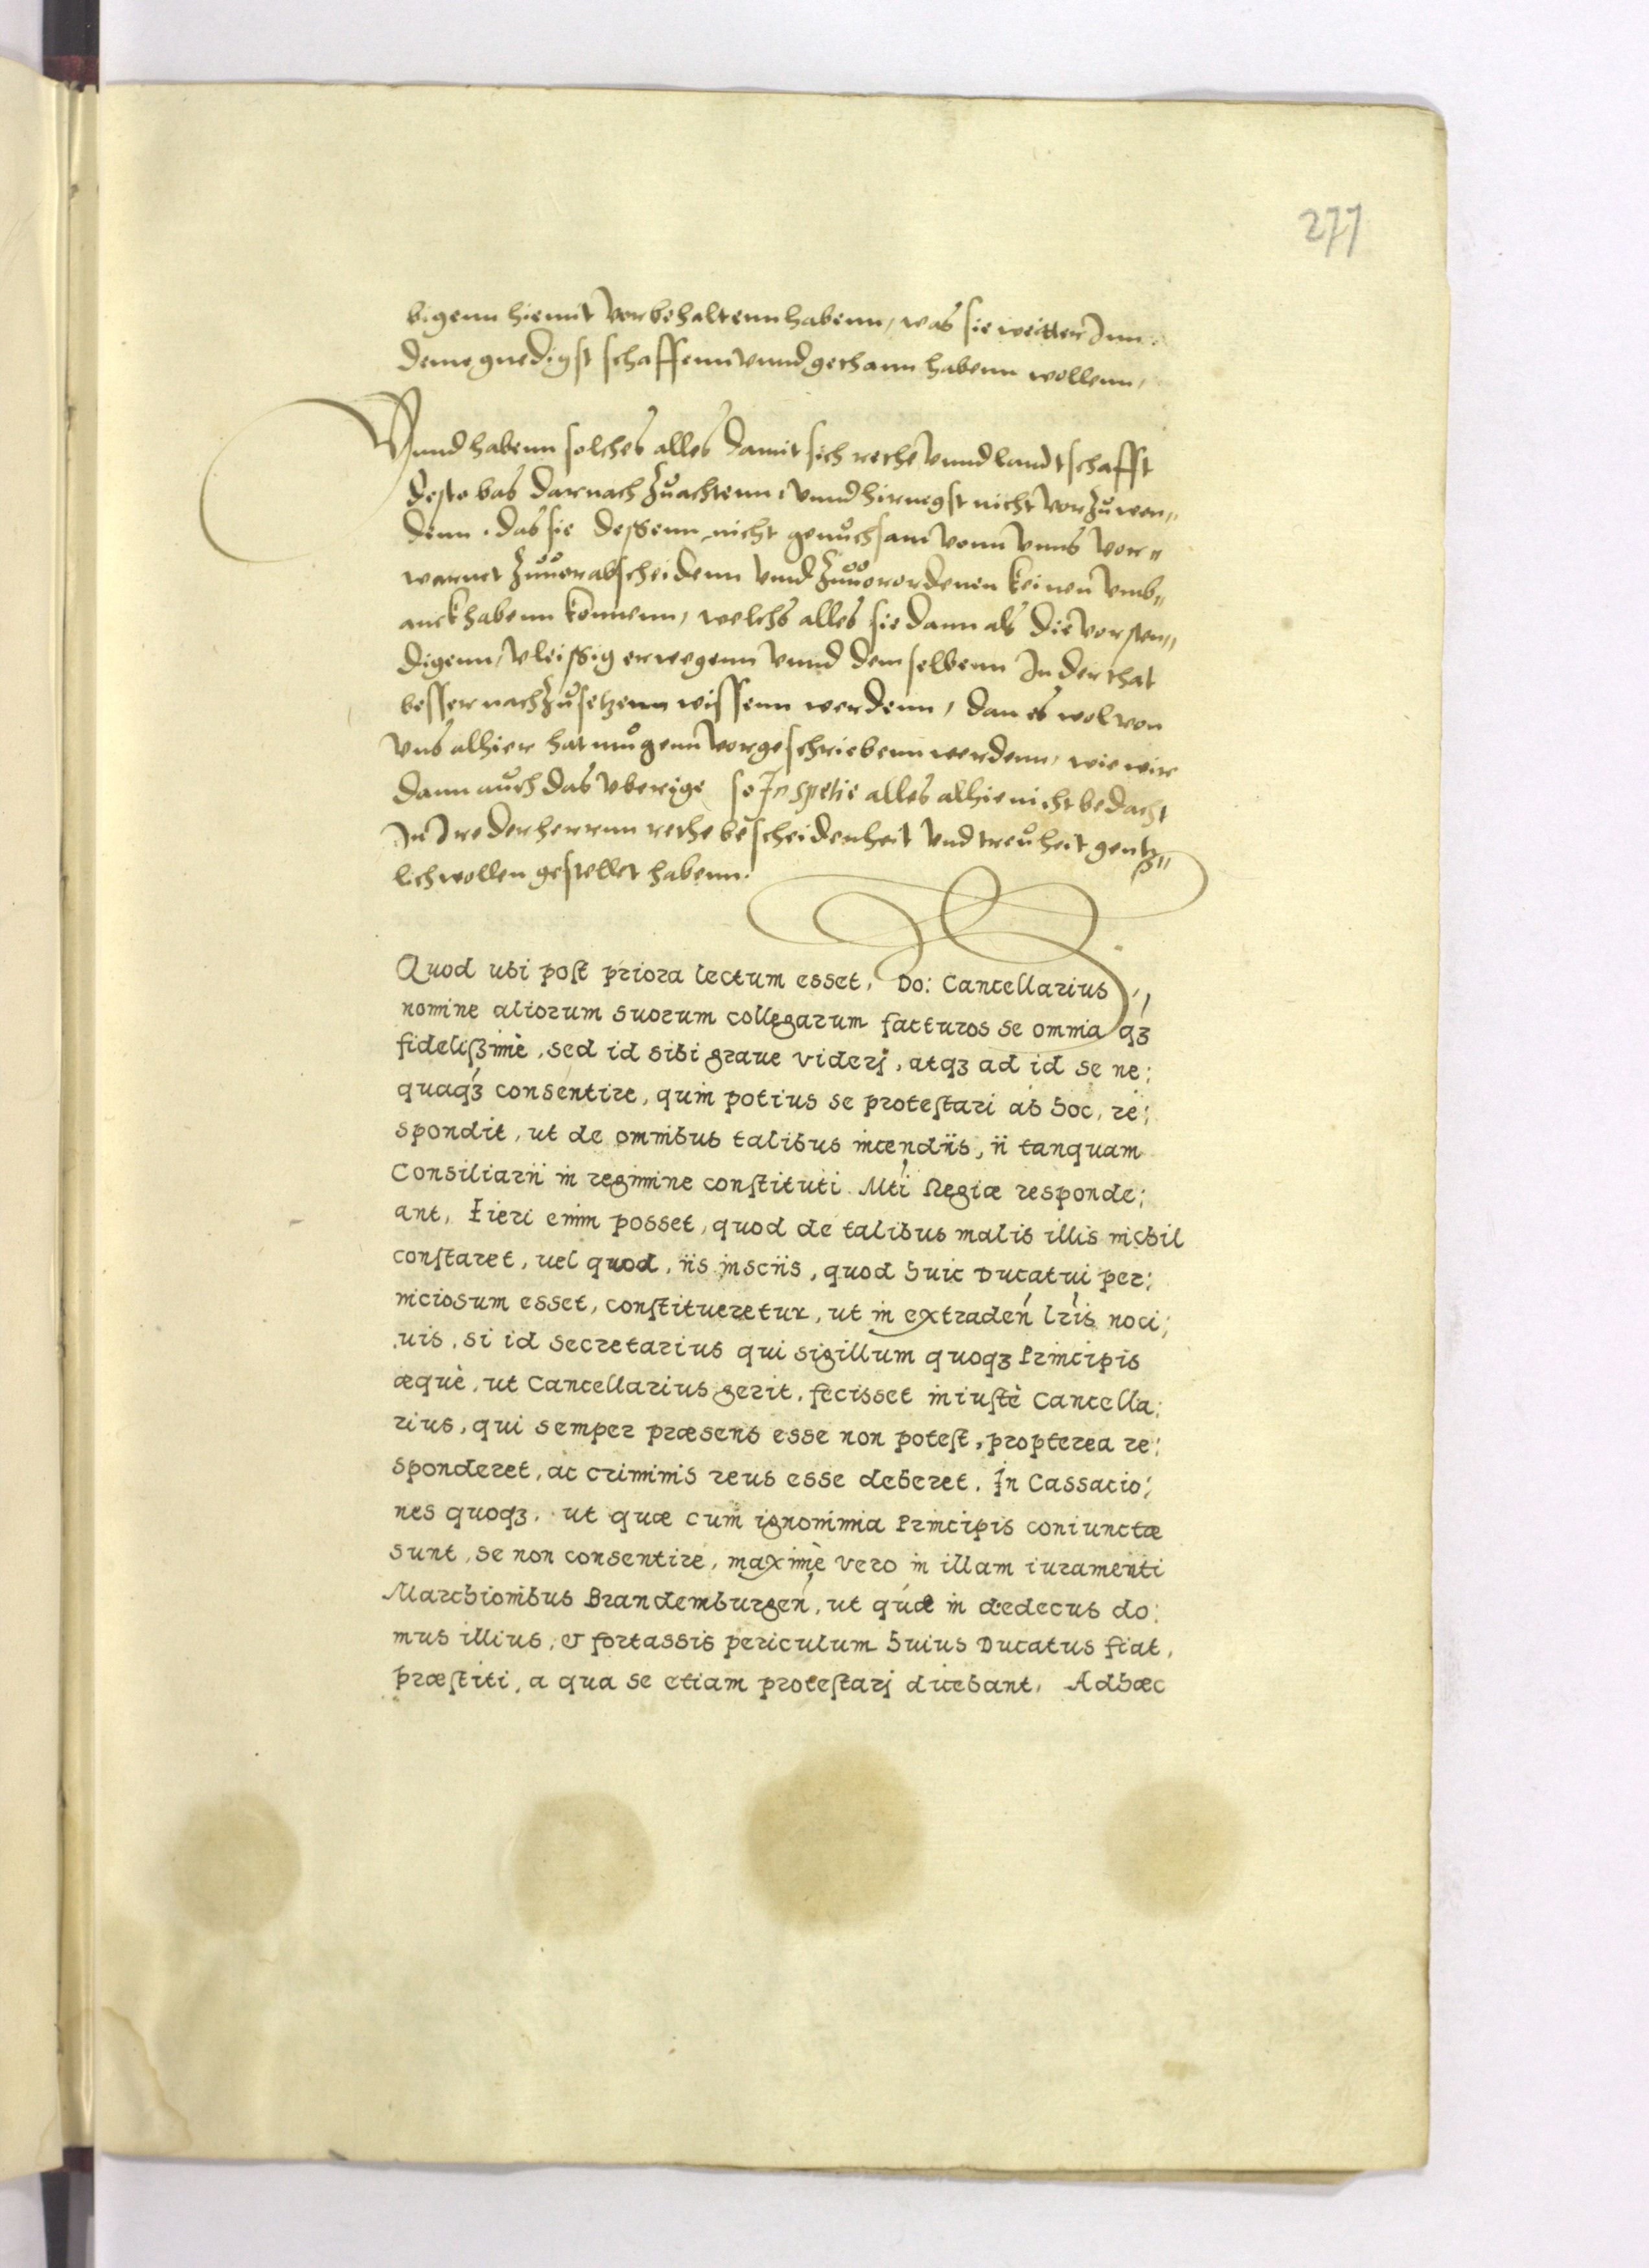 277
bigenn hiemit vorbehaltenn habenn, was sie weitter Inn
deme gnedigst schaffenn vnnd gethann habenn wollenn,
Vnnd habenn solches alles damit sich rethe vnnd landtschafft
desto bas darnach zuachtenn, vnnd hirnegst nicht vorzuwen„
denn, das sie dessenn nicht genuchsam vonn vnns vor„
warnet zuuorabscheidenn vnnd zuuorordenen keinen vmb„
anck habenn konnenn, welchs alles sie dann als die vorsten„
digenn, vleissig erwegenn vnnd demselbenn In der that
besser nachzusetzenn wissenn werdenn, dan es wol von
vns alhier hat mugenn vorgeschriebenn werdenn, wie wir
dann auch das vberige so In spetie alles alhie nicht bedacht
In Ire der herrnn rethe bescheidenheit vnd treuheit gentz„
lich wollen gestellet habenn.
Quod ubi post priora lectum esset, Do: Cancellarius,
nomine aliorum suorum collegarum facturos se omnia qʒ
fidelißimè, sed id sibi graue viderj, atqʒ ad id se ne:
quaqʒ consentire, quin potius se protestari ab hoc, re:
spondit, ut de omnibus talibus incendijs, ij tanquam
Consiliarij in regimine constituti Mti Regiæ responde:
ant, Fieri enim posset, quod de talibus malis illis nichil
constaret, uel quod, ijs inscijs, quod huic Ducatui per:
niciosum esset, constitueretur, ut in extraden̄ lr̄is noci:
uis, si id secretarius qui sigillum quoqʒ Principis
æquè, ut Cancellarius gerit, fecisset iniustè Cancella:
rius, qui semper præsens esse non potest, propterea re:
sponderet, ac criminis reus esse deberet. In Cassacio:
nes quoqʒ, ut quæ cum ignominia Principis coniunctæ
sunt, se non consentire, maximè vero in illam iuramenti
Marchionibus Brandemburgen̄, ut quæ in dedecus do:
mus illius, & fortassis periculum huius Ducatus fiat,
præstiti, a qua se etiam protestarj dicebant, Adhæc